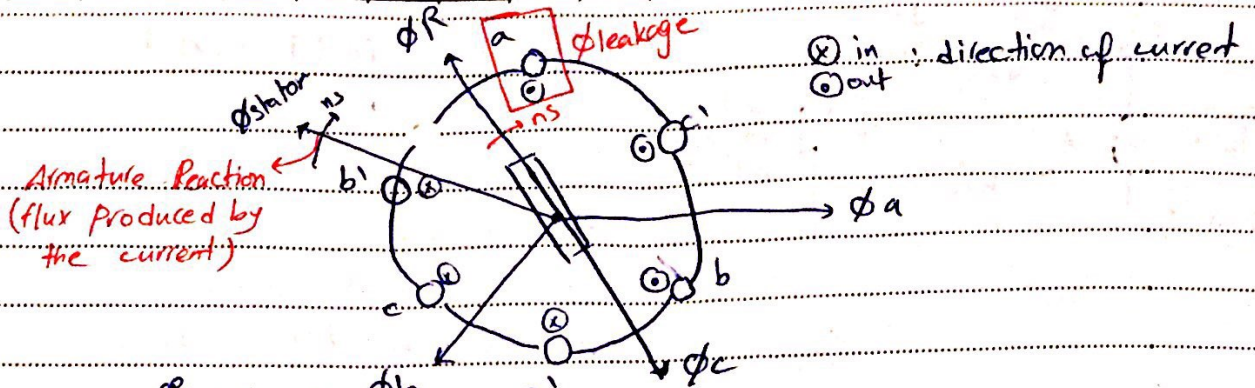 φR
a
φleakage
ⓧ in : direction of current
⊙ out
φstator
ns
ns
c'
Armature Reaction
(flux produced by
the current)
b'
φa
b
c
φb
φc